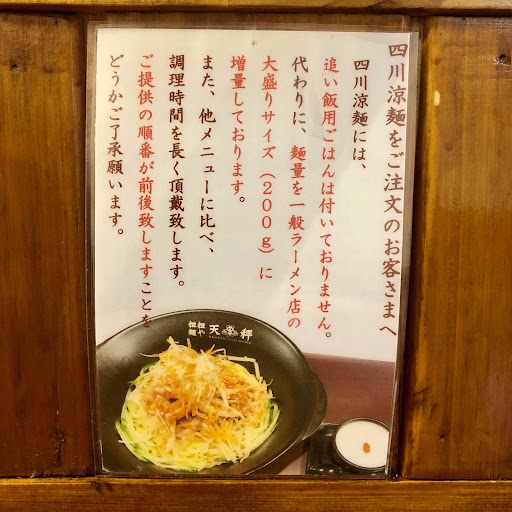 四川涼麺をご注文のお客さまへ
四川涼麺には、
追い飯用ごはんは付いておりません。
代わりに、麺量を一般ラーメン店の
大盛りサイズ（２００ｇ）に
増量しております。
また、他メニューに比べ、
調理時間を長く頂戴致します。
ご提供の順番が前後致しますことを
どうかご了承願います。
担担麺や 天秤